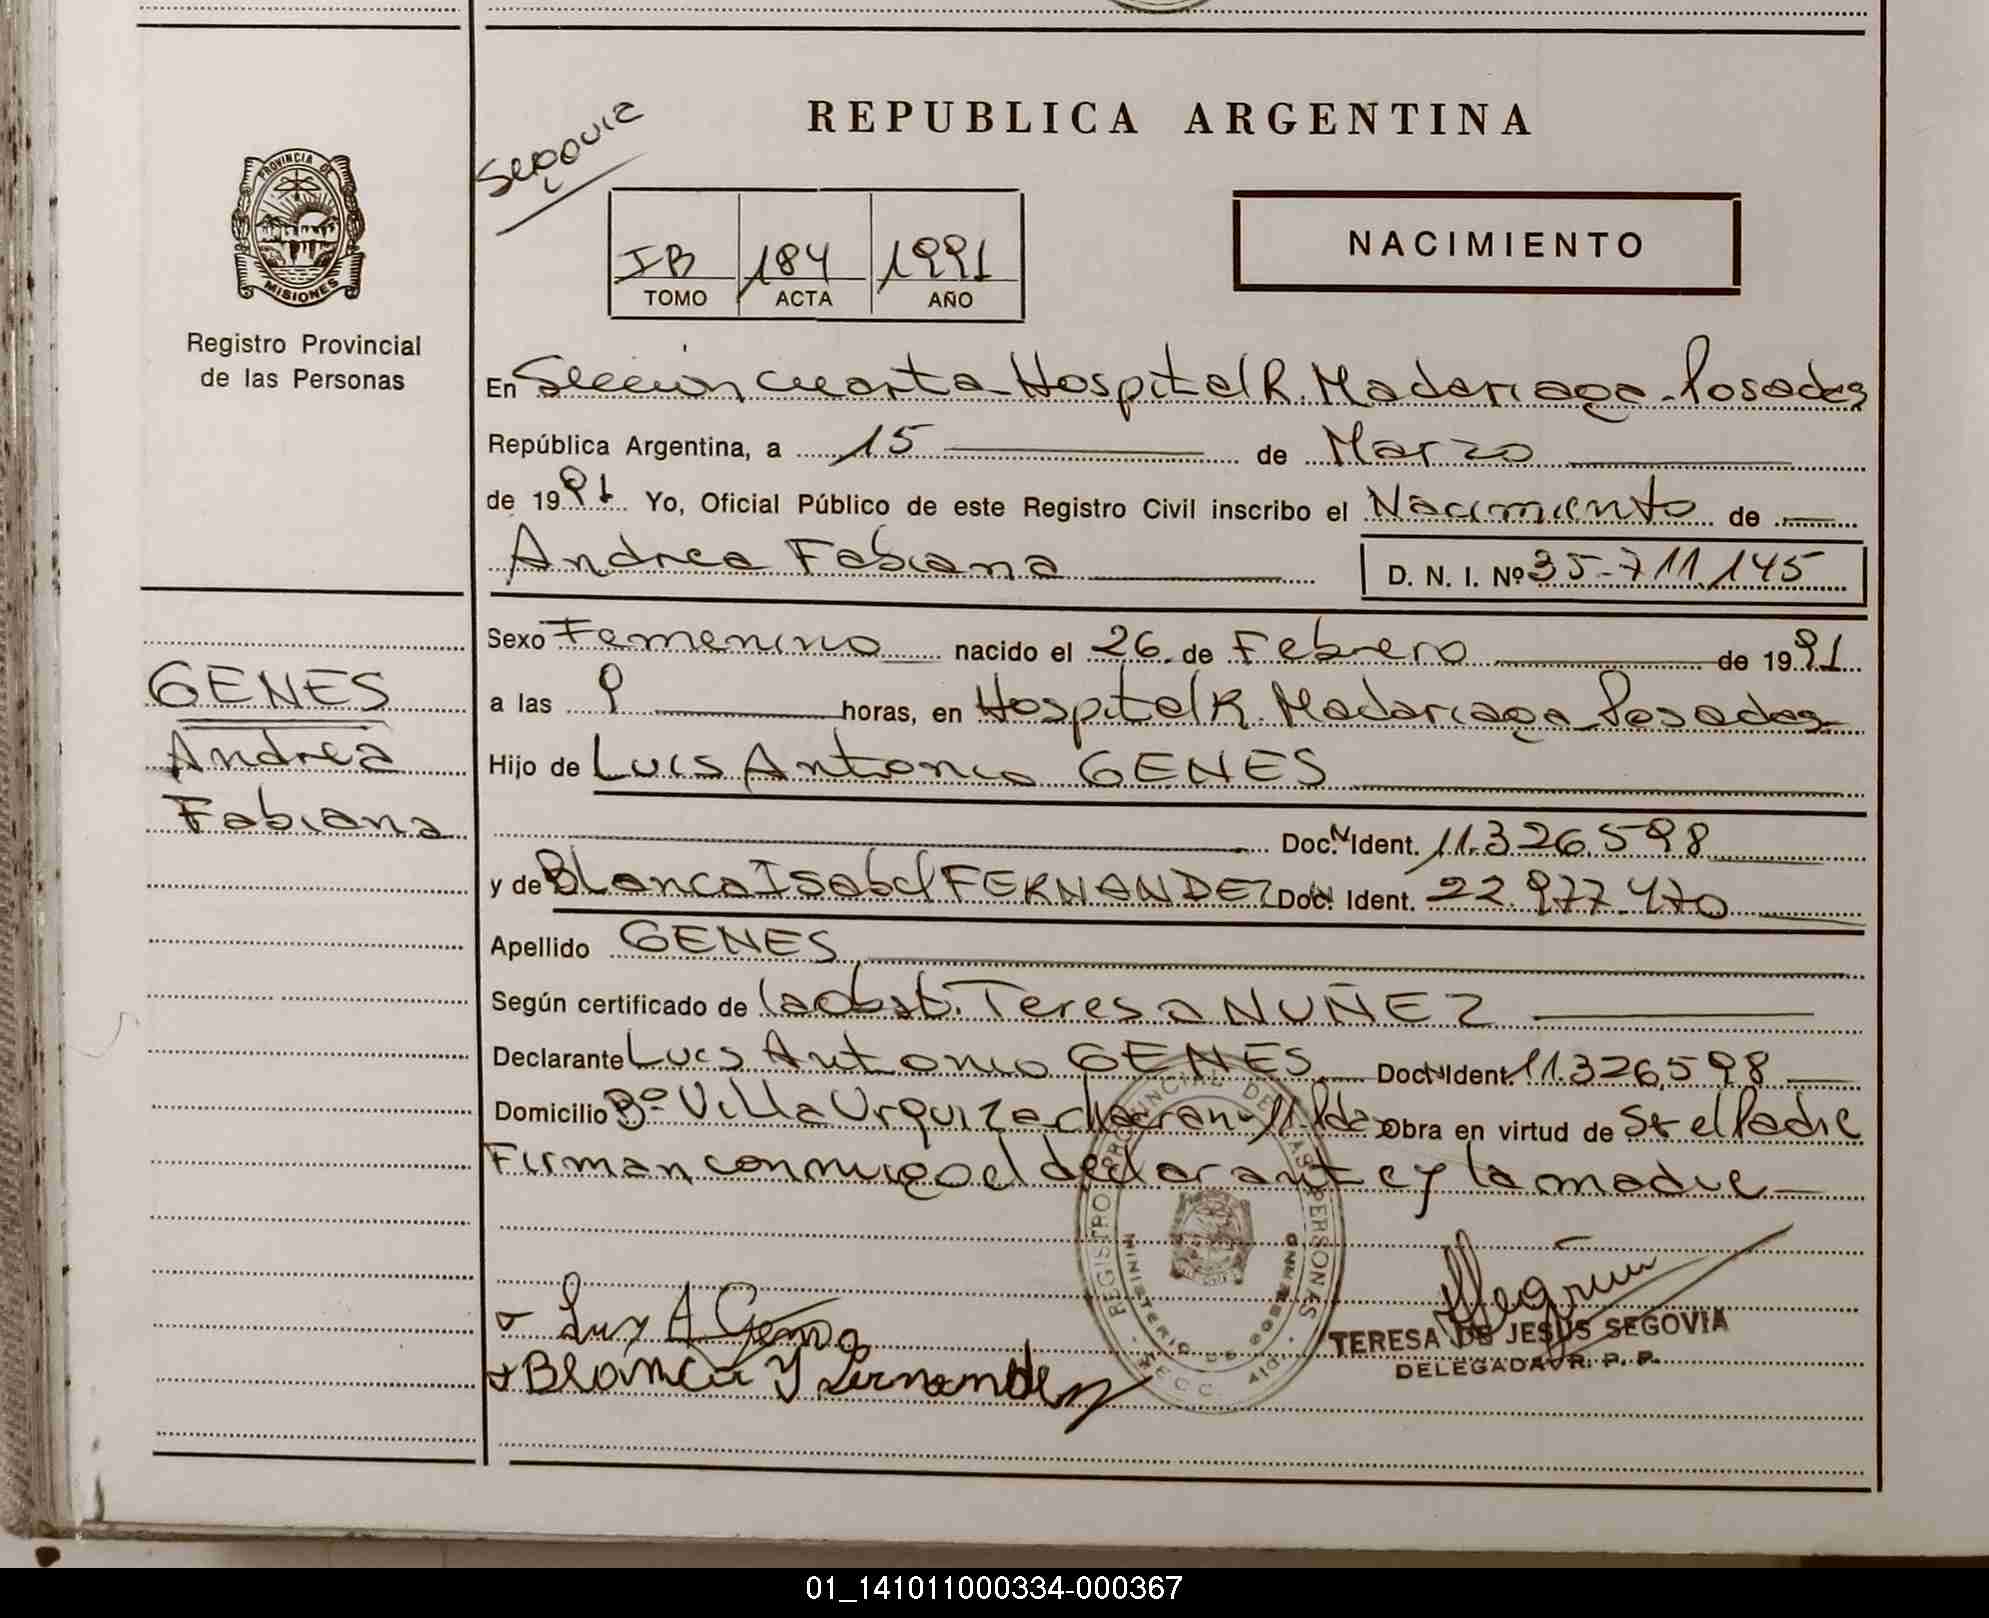 REPUBLICA ARGENTINA
Segovia
PROVINCIA DE
MISIONES
Registro Provincial
de las Personas
IB 184 1991
TOMO ACTA AÑO
NACIMIENTO
En Sección cuarta Hospital R. Madariaga - Posadas
República Argentina, a 15 de Marzo
de 1991 Yo, Oficial Público de este Registro Civil inscribo el Nacimiento de
Andrea Fabiana D. N. I. Nº 35-711.145
Sexo Femenino nacido el 26 de Febrero de 1991
GENES
a las 9 horas, en Hospital R. Madariaga Posadas
Andrea
Hijo de Luis Antonio GENES
Fabiana
Doc. N Ident. 11.326.598
y de Blanca Isabel FERNANDEZ Doc. N Ident. 22.977.470
Apellido GENES
Según certificado de la obst. Teresa NUÑEZ
Declarante Luis Antonio GENES Doc N Ident. 11.326.598
Domicilio Bº Villa Urquiza Obra en virtud de Sr el Padre
Firman conmigo el declarante y la madre
REGISTRO PROVINCIAL DE LAS PERSONAS
MINISTERIO DE GOBIERNO
Luis A Genes
Blanca Y Fernandez
TERESA DE JESUS SEGOVIA
DELEGADA R. P. P.
01_141011000334-000367